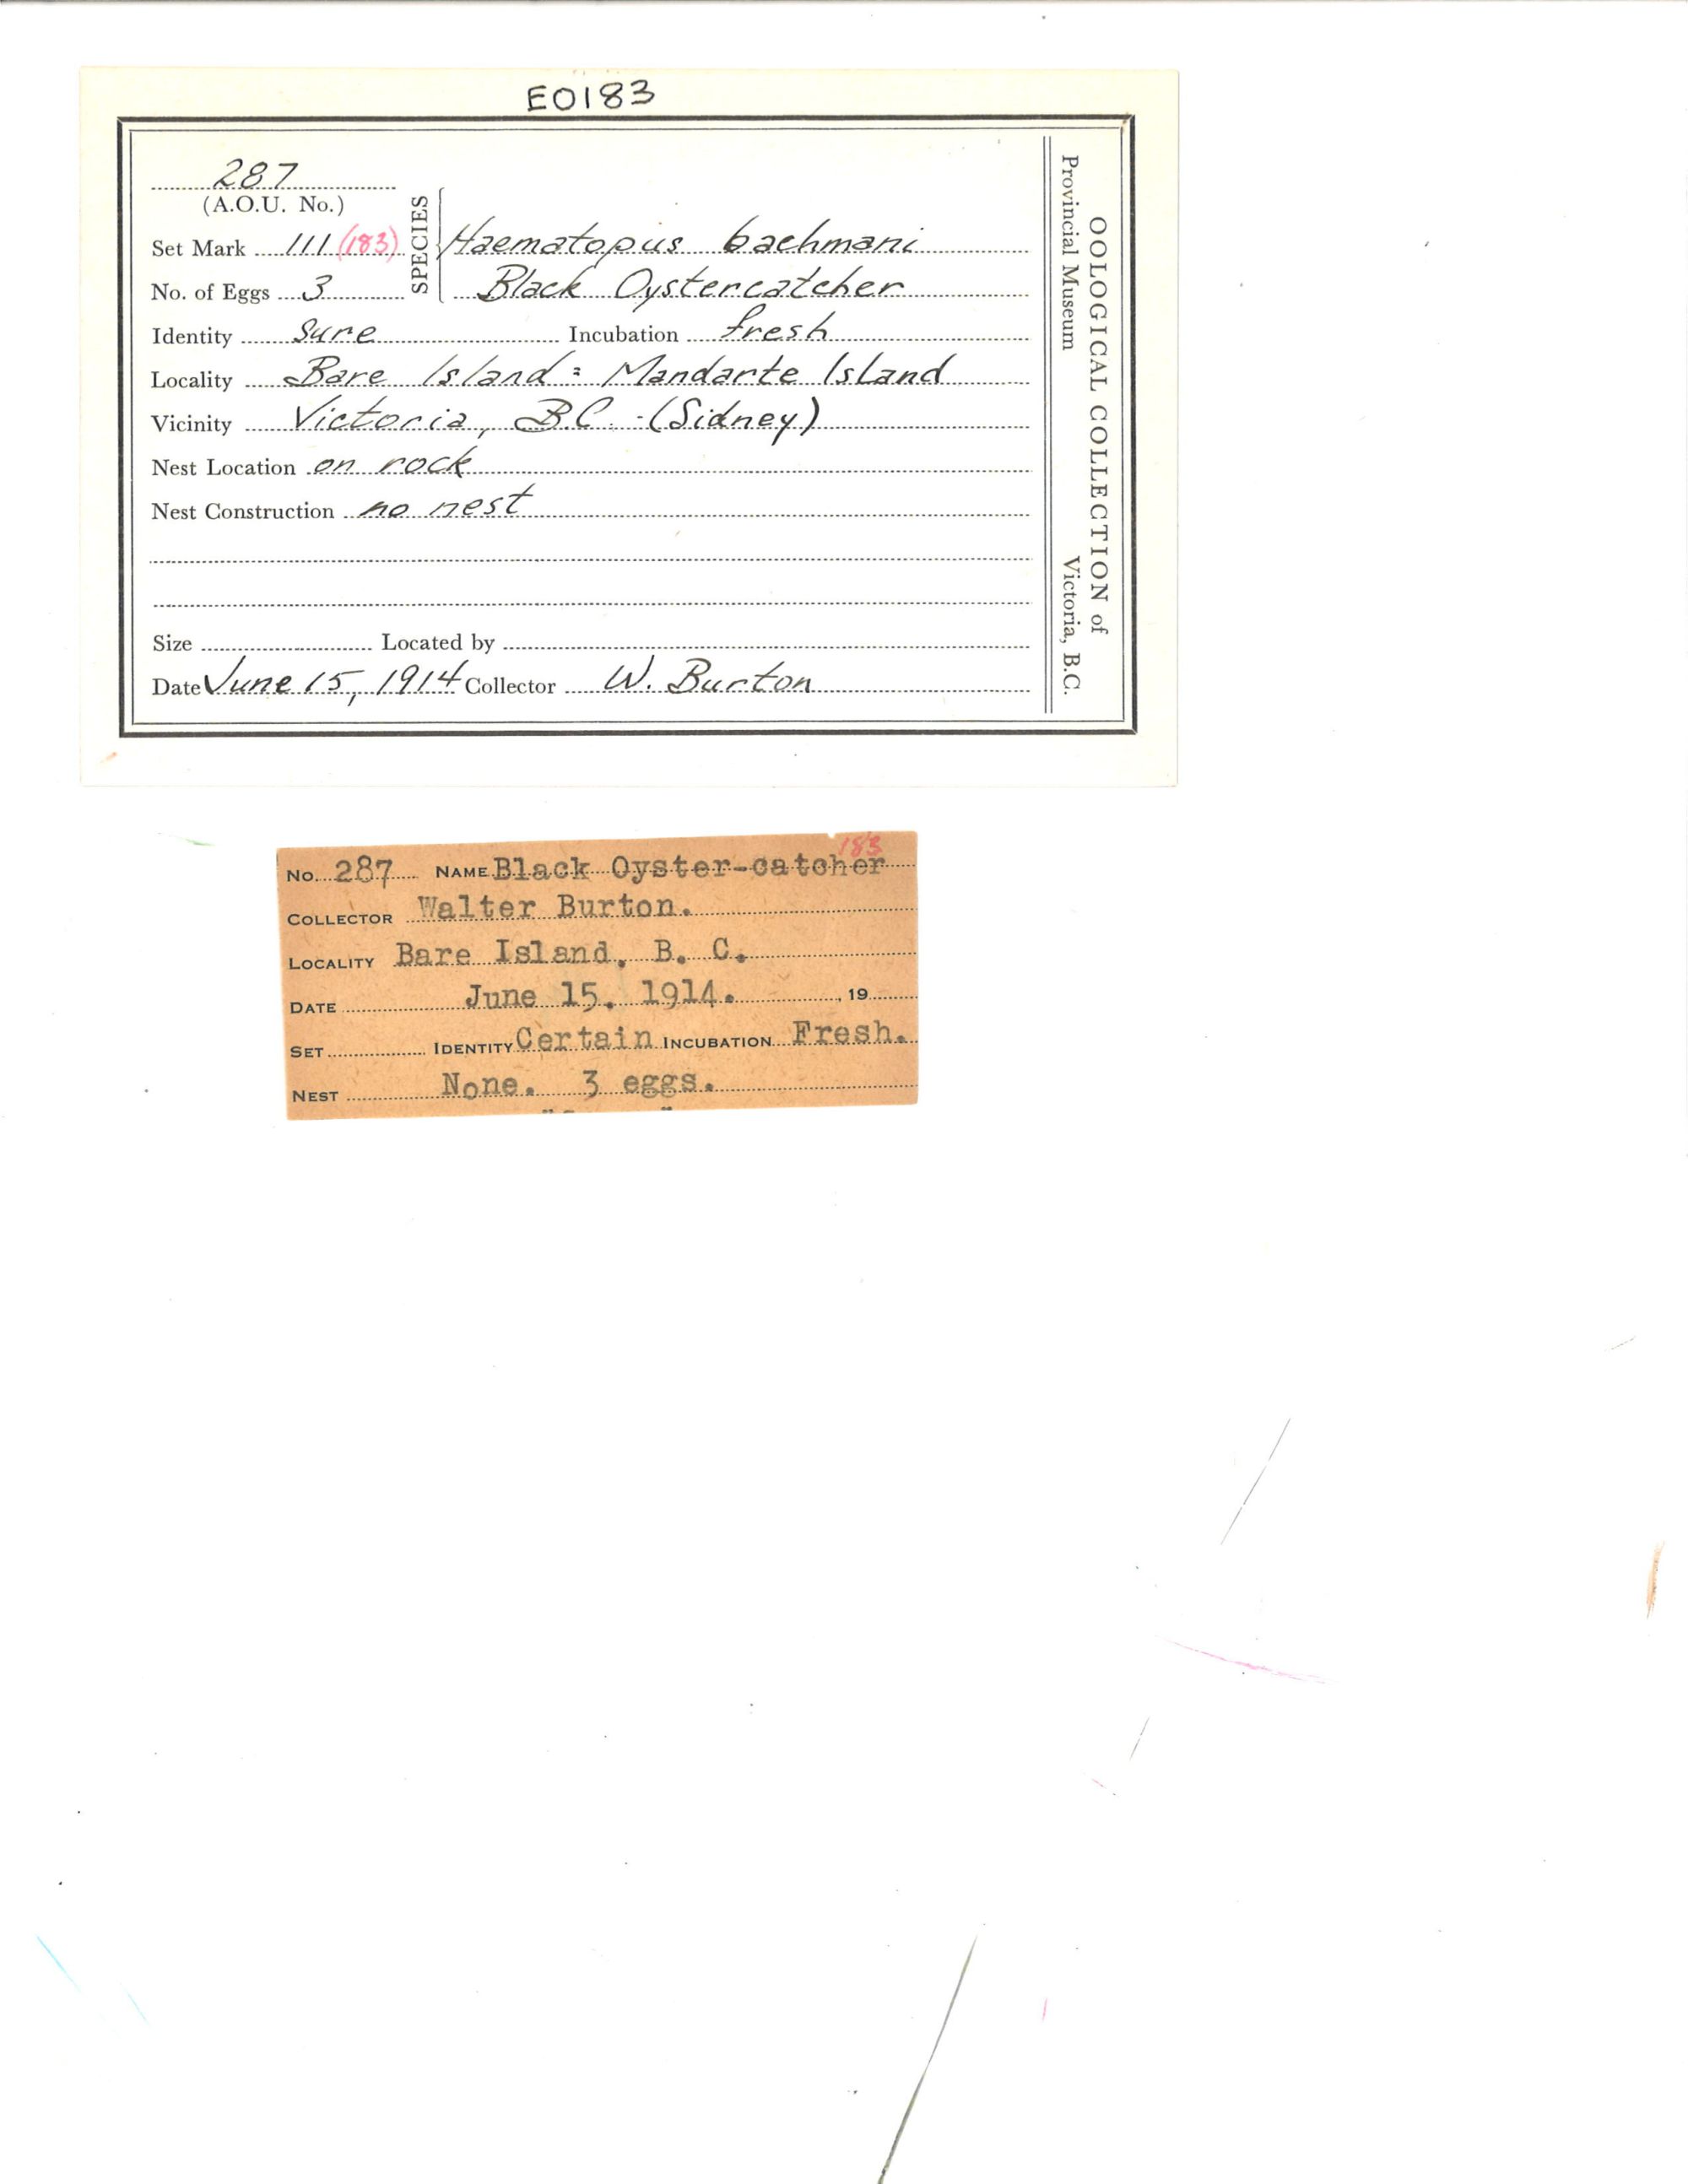 E0183
287
(A.O.U. No.)
Set Mark 111 (183)
No. of Eggs 3
SPECIES
Haematopus bachmani
Black Oystercatcher
Identity Sure Incubation fresh
Locality Bare Island = Mandarte Island
Vicinity Victoria, B.C. - (Sidney)
Nest Location on rock
Nest Construction no nest
Size Located by
Date June 15, 1914 Collector W. Burton
OOLOGICAL COLLECTION of
Provincial Museum Victoria, B.C.
183
No. 287 NAME Black Oyster-catcher
COLLECTOR Walter Burton.
LOCALITY Bare Island, B. C.
DATE June 15, 1914. , 19
SET IDENTITY Certain INCUBATION Fresh.
NEST None. 3 eggs.